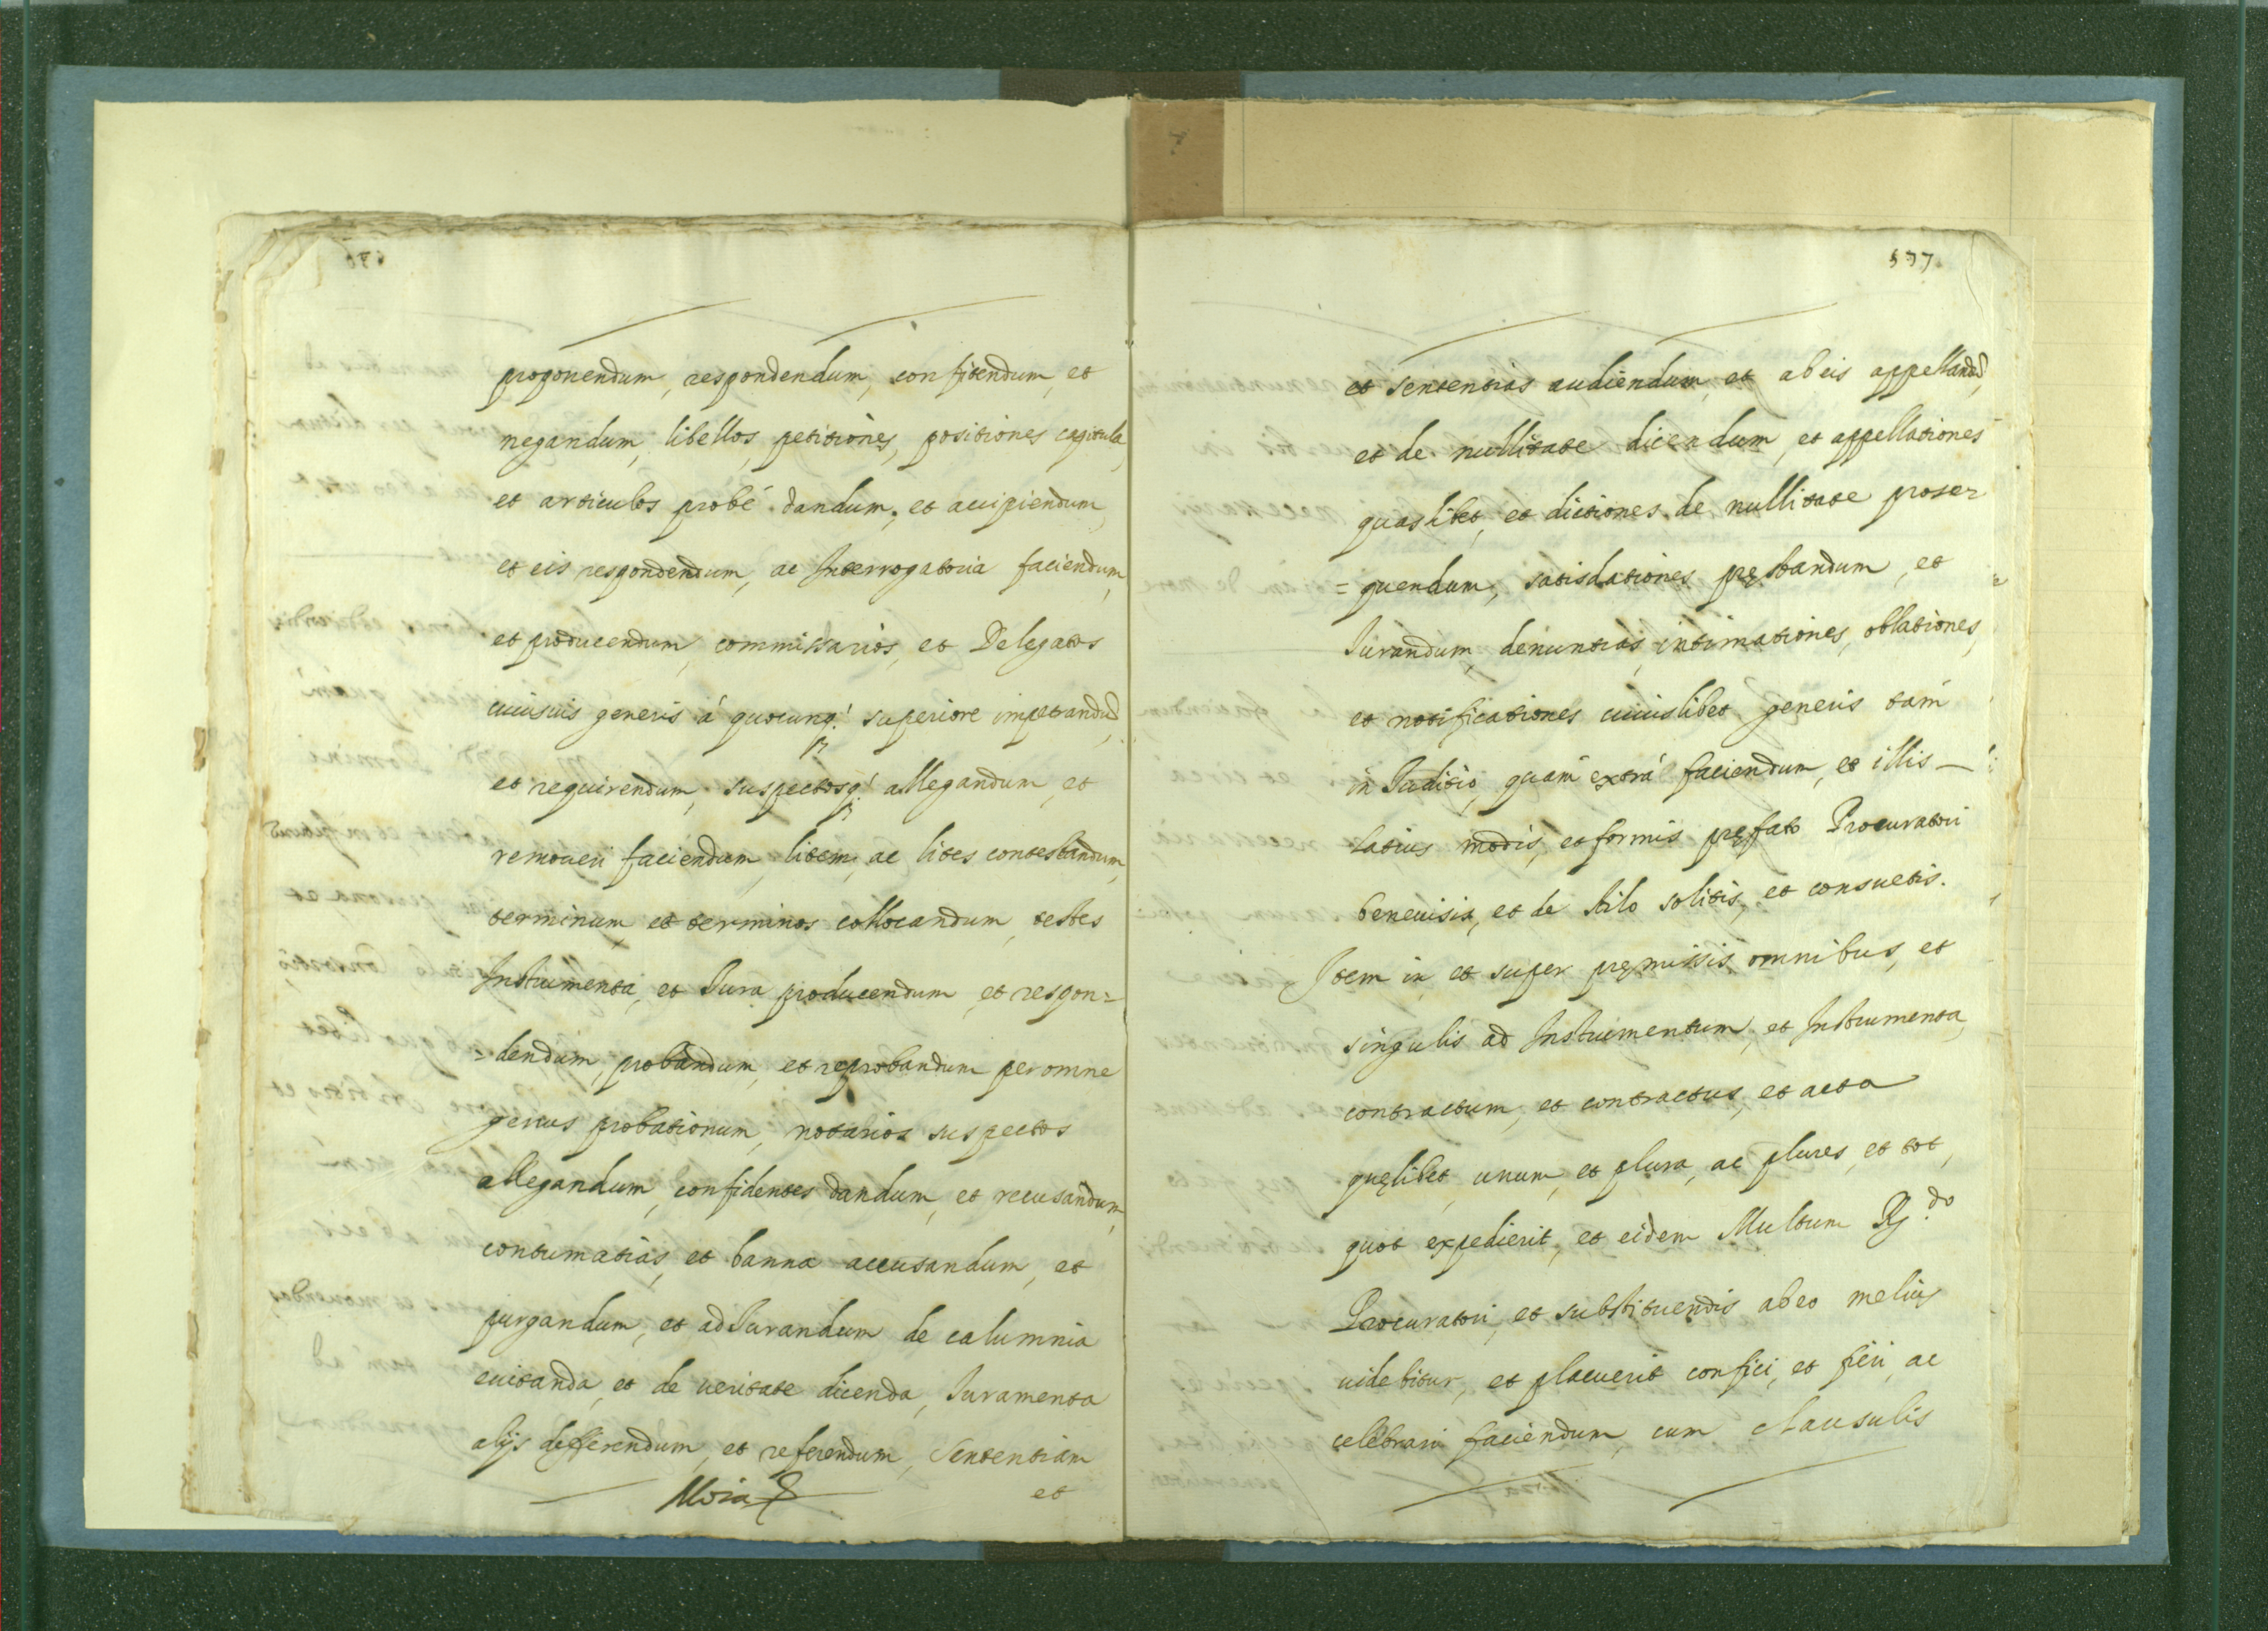 proponendum, respondendum, confitendum, et
negandum, libellos, petitiones, positiones capitula,
et articulos probé dandum, et accipiendum,
et eis respondendum, ac Interrogatoria faciendum,
et producendum, commissarios, et Delegatos
cuiusuis generis á quocunq́ superiore impetrandũ,
et requirendum, suspectosq́ allegandum, et
remoueri faciendum, litem, ac lites contestandum,
terminum, et terminos collocandum, testes
Instrumenta, et Iura producendum, et respon=
=dendum, probandum, et reprobandum per omne
genus probationum, notarios suspectos
allegandum, confidentes dandum, et recusandum,
contumatias, et banna accusandum, et
purgandum, et ad Iurandum de calumnia
euitanda, et de ueritate dicenda, Iuramenta
alijs defferendum, et referendum, Sententiam
et
537
et sententias audiendum, et ab eis appellandũ,
et de nullitate dicendum, et appellationes
quaslibet, et dictiones de nullitate prose
=quendum, satisdationes pręstandum, et
Iurandum, denuntias, intimationes, oblationes,
et notificationes cuiuslibet generis tam
in Iuditio, quam extrá faciendum, et illis —
latius modis, et formis pręfato Procuratori
beneuisis, et de stilo solitis, et consuetis.
Item in et super pręmissis omnibus, et
singulis ad Instrumentum, et Instrumenta,
contractum, et contractus, et acta
quęlibet, unum, et plura, ac plures, et tot,
quot expedierit, et eidem Multum R.do
Procuratori, et substituendis ab eo melius
uidebitur, et placuerit confici, et fieri, ac
celebrari faciendum, cum clausulis